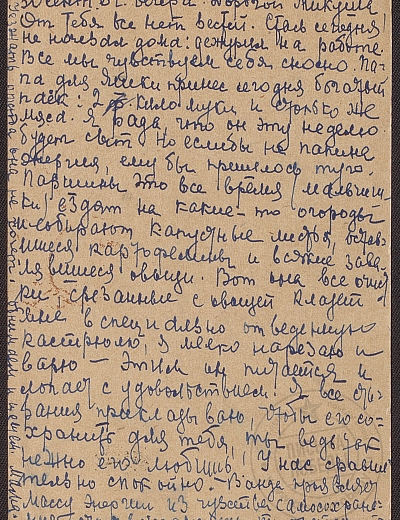 вечера. Дорогой Микуша
От Тебя все нет вестей. Стась сегодня
не ночевал дома: дежурил на работе.
Все мы чувствуем себя сносно. Па-
па для Ляськи принес сегодня богатый
паек: 2 кило муки и столько же
мяса. Я рада, что он эту неделю
будет сыт. Но если бы не папина
энергия, ему бы пришлось туго.
Паршины это все время мальчиш-
ки, ездят на какие-то огороды
и собирают капустные листья, остав-
шиеся картофелины и всякие зава-
лявшиеся овощи. Вот она все очист
ки - срезанные с овощей кладет
мне в специально отведенную
кастрюлю, я мелко нарезаю и
варю - этим он питается и
лопает с удовольствием. Я все ста-
рания прикладываю, чтобы его со-
хранить для тебя, ты ведь так
нежно его любишь! У нас сравни
тельно спокойно. - Ванда проявляет
массу энергии из чувства самосохране-